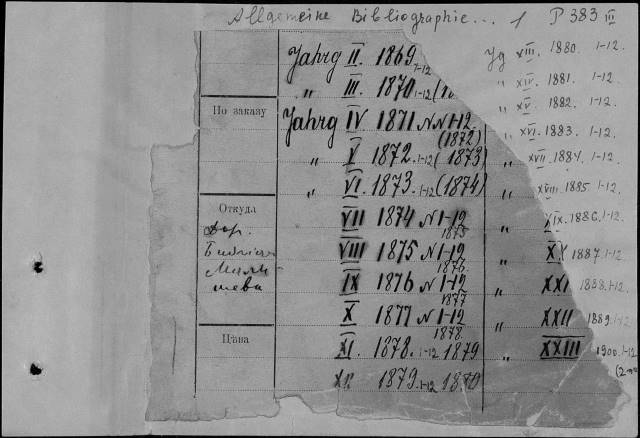 Allgemeine Bibliographie... 1 P 383 III
Jahrg II. 1869 1-12 Jg XIII. 1880. 1-12
„ III. 1870 1-12 „ XIV. 1881. 1-12
По заказу
Jahrg IV 1871 N N 1-12 (1872) „ XV. 1882. 1-12
„ V 1872. 1-12 (1873) „ XVI. 1883. 1-12
„ VI. 1873. 1-12 (1874) „ XVII. 1884. 1-12
„ XVIII. 1885. 1-12
Откуда
VII 1874 N 1-12 1875 „ XIX. 1886. 1-12
VIII 1875 N 1-12 1876. „ XX 1887. 1-12.
IX 1876 N 1-12 1877 „ XXI 1888. 1-12.
X 1877 N 1-12 1878. „ XXII 1889. 1-12
Цѣна
XI. 1878. 1-12 1879 „ XXIII 1900. 1-12
XII 1879. 1-12 1870